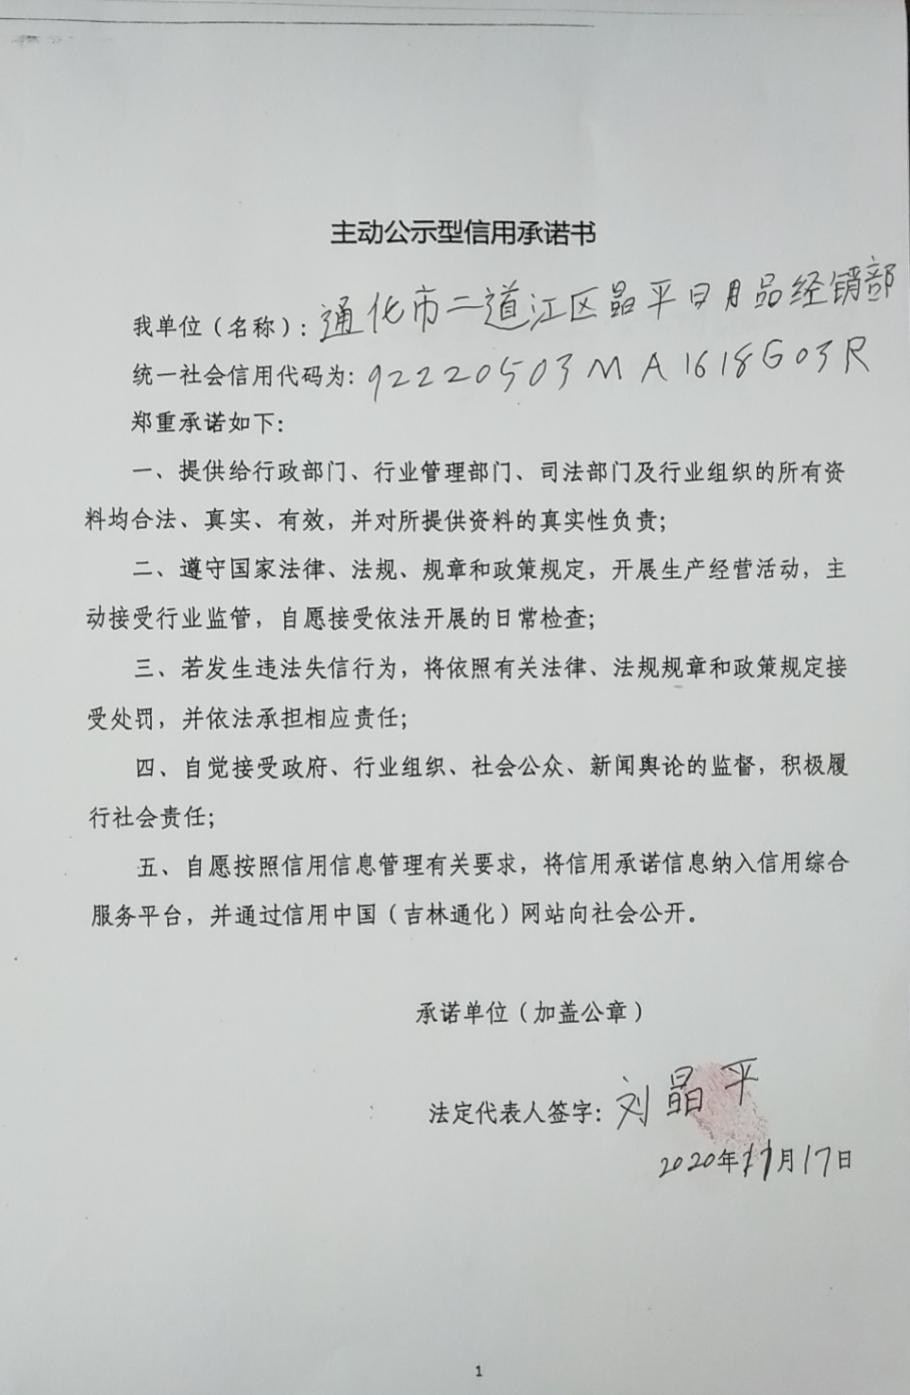 主动公示型信用承诺书
我单位（名称）：通化市二道江区晶平日月品经销部
统一社会信用代码为：92220503MA1618G03R
郑重承诺如下：
一、提供给行政部门、行业管理部门、司法部门及行业组织的所有资
料均合法、真实、有效，并对所提供资料的真实性负责；
二、遵守国家法律、法规、规章和政策规定，开展生产经营活动，主
动接受行业监管，自愿接受依法开展的日常检查；
三、若发生违法失信行为，将依照有关法律、法规规章和政策规定接
受处罚，并依法承担相应责任；
四、自觉接受政府、行业组织、社会公众、新闻舆论的监督，积极履
行社会责任；
五、自愿按照信用信息管理有关要求，将信用承诺信息纳入信用综合
服务平台，并通过信用中国（吉林通化）网站向社会公开。
承诺单位（加盖公章）
法定代表人签字：刘晶平
2020年11月17日
1